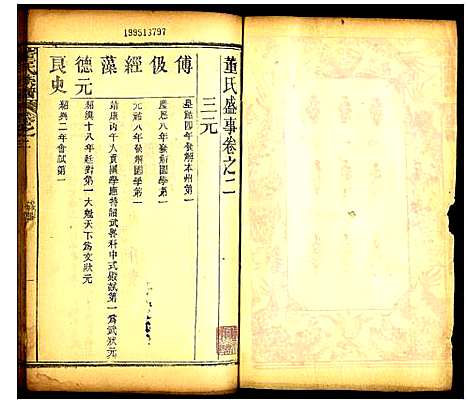 199513797
董氏盛事卷之二
三元
傅 皇祐四年發解本州第一
伋 慶曆八年發解國學第一
經 元祐八年發解國學第一
藻 靖康丙午人貢國學應特詔武舉科中式殿試第一為武狀元
德元 紹興十八年廷對第一大魁天下為文狀元
良史 紹興二年會試第一